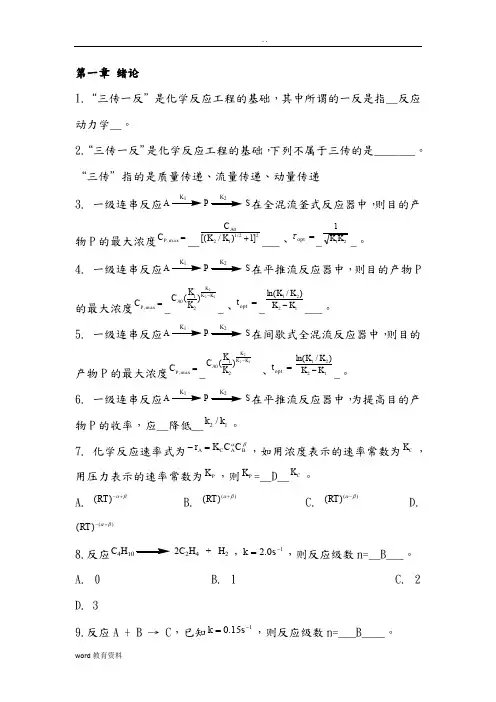 ..
第一章 绪论
1.“三传一反”是化学反应工程的基础，其中所谓的一反是指__反应
动力学__。
2.“三传一反”是化学反应工程的基础，下列不属于三传的是_______。
“三传”指的是质量传递、流量传递、动量传递
3. 一级连串反应A —K1→ P —K2→ S在全混流釜式反应器中，则目的产
物P的最大浓度C_{P,max} = __ C_{A0} / [(K_2/K_1)^{1/2}+1]^2 ___、τ_{opt} = _ 1/√(K_1K_2) _。
4. 一级连串反应A —K1→ P —K2→ S在平推流反应器中，则目的产物P
的最大浓度C_{P,max} = _ C_{A0}(K_1/K_2)^{K_2/(K_2−K_1)} _、t_{opt} = _ ln(K_1/K_2)/(K_2−K_1) ___。
5. 一级连串反应A —K1→ P —K2→ S在间歇式全混流反应器中，则目的
产物P的最大浓度C_{P,max} = _ C_{A0}(K_1/K_2)^{K_2/(K_2−K_1)} 、t_{opt} = ln(K_1/K_2)/(K_2−K_1) _。
6. 一级连串反应A —K1→ P —K2→ S在平推流反应器中，为提高目的产
物P的收率，应__降低__k_2/k_1。
7. 化学反应速率式为−r_A = K_C C_A^α C_B^β，如用浓度表示的速率常数为K_C，
用压力表示的速率常数为K_P，则K_P=__D__K_C。
A. (RT)^{−α+β} B. (RT)^{(α+β)} C. (RT)^{(α−β)} D.
(RT)^{−(α+β)}
8.反应C4H10 → 2C2H4 + H2，k = 2.0s^{−1}，则反应级数n=__B___。
A. 0 B. 1 C. 2
D. 3
9.反应A + B → C，已知k = 0.15s^{−1}，则反应级数n=___B____。
word教育资料